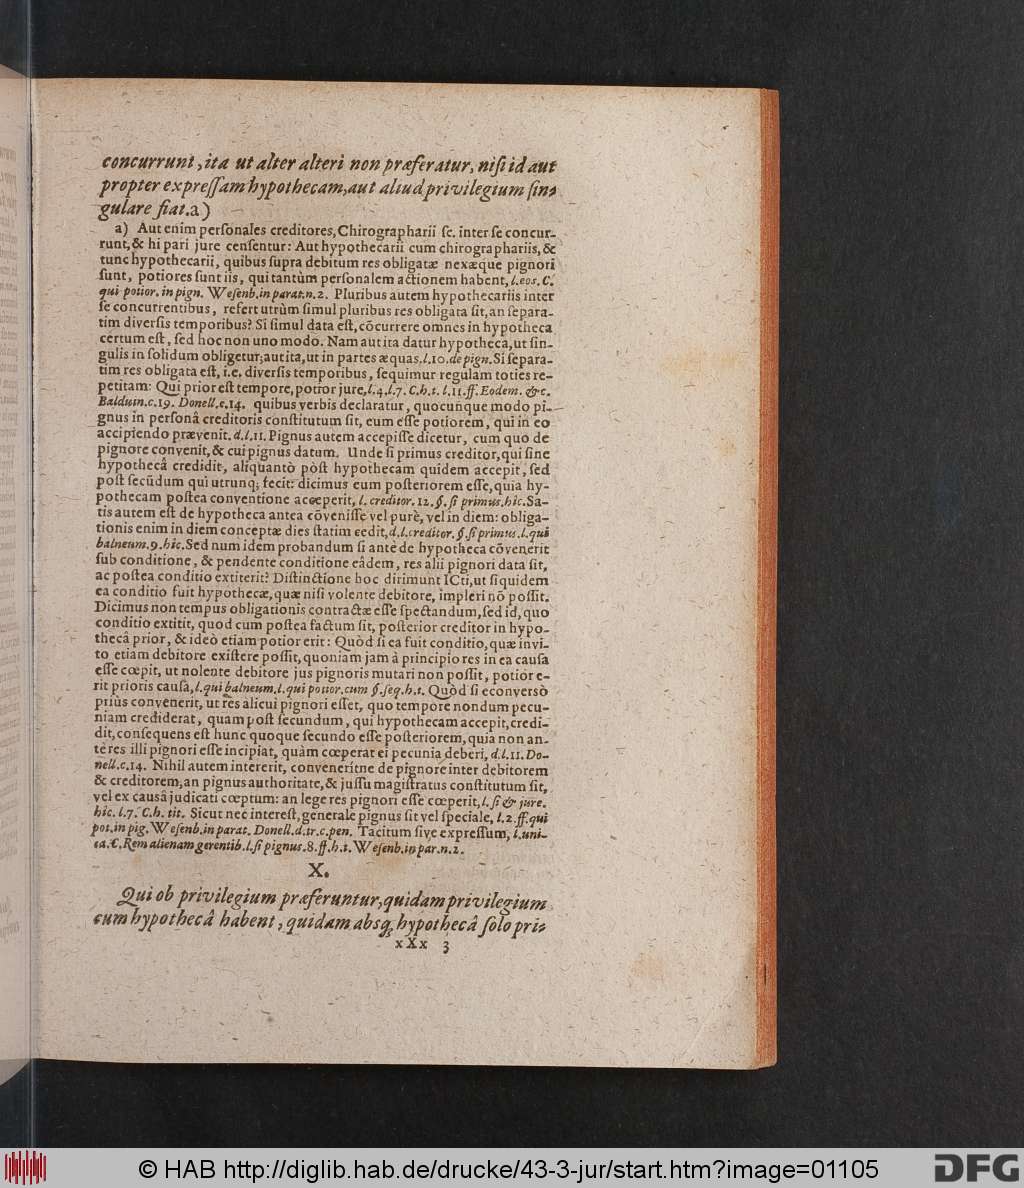 concurrunt, ita ut alter alteri non præferatur, niſi id aut
propter expreſſam hypothecam, aut aliud privilegium ſin-
gulare fiat. a)
a) Aut enim perſonales creditores, Chirographarii ſc. inter ſe concur-
runt, & hi pari jure cenſentur: Aut hypothecarii cum chirographariis, &
tunc hypothecarii, quibus ſupra debitum res obligatæ nexæque pignori
ſunt, potiores ſunt iis, qui tantùm perſonalem actionem habent, l. eos. C.
qui potior. in pign. Weſenb. in parat. n. 2. Pluribus autem hypothecariis inter
ſe concurrentibus, refert utrùm ſimul pluribus res obligata ſit, an ſepara-
tim diverſis temporibus? Si ſimul data eſt, cōcurrere omnes in hypotheca
certum eſt, ſed hoc non uno modo. Nam aut ita datur hypotheca, ut ſin-
gulis in ſolidum obligetur; aut ita, ut in partes æquas, l. 10. de pign. Si ſepara-
tim res obligata eſt, i.e. diverſis temporibus, ſequimur regulam toties re-
petitam: Qui prior eſt tempore, potior jure, l. 4. l. 7. C. h. t. l. 11. ff. Eodem. &c.
Balduin. c. 19. Donell. c. 14. quibus verbis declaratur, quocunque modo pi-
gnus in perſonâ creditoris conſtitutum ſit, eum eſſe potiorem, qui in eo
accipiendo prævenit. d. l. 11. Pignus autem accepiſſe dicetur, cum quo de
pignore convenit, & cui pignus datum. Unde ſi primus creditor, qui ſine
hypothecâ credidit, aliquantò pòſt hypothecam quidem accepit, ſed
poſt ſecūdum qui utrunq; fecit: dicimus eum poſteriorem eſſe, quia hy-
pothecam poſtea conventione acceperit, l. creditor. 12. §. ſi primus. hic. Sa-
tis autem eſt de hypotheca antea cōveniſſe vel purè, vel in diem: obliga-
tionis enim in diem conceptæ dies ſtatim cedit, d. l. creditor. §. ſi primus. l. qui
balneum. 9. hic. Sed num idem probandum ſi antè de hypotheca cōvenerit
ſub conditione, & pendente conditione eâdem, res alii pignori data ſit,
ac poſtea conditio extiterit? Diſtinctione hoc dirimunt ICti, ut ſiquidem
ea conditio fuit hypothecæ, quæ niſi volente debitore, impleri nō poſſit.
Dicimus non tempus obligationis contractæ eſſe ſpectandum, ſed id, quo
conditio extitit, quod cum poſtea factum ſit, poſterior creditor in hypo-
thecâ prior, & ideò etiam potior erit: Quòd ſi ea fuit conditio, quæ invi-
to etiam debitore exiſtere poſſit, quoniam jam â principio res in ea cauſa
eſſe cœpit, ut nolente debitore jus pignoris mutari non poſſit, potior e-
rit prioris cauſa, l. qui balneum. l. qui potior. cum §. ſeq. h. t. Quòd ſi econversò
priùs convenerit, ut res alicui pignori eſſet, quo tempore nondum pecu-
niam crediderat, quam poſt ſecundum, qui hypothecam accepit, credi-
dit, conſequens eſt hunc quoque ſecundo eſſe poſteriorem, quia non an-
tè res illi pignori eſſe incipiat, quàm cœperat ei pecunia deberi, d. l. 11. Do-
nell. c. 14. Nihil autem intererit, conveneritne de pignore inter debitorem
& creditorem, an pignus authoritate, & juſſu magiſtratus conſtitutum ſit,
vel ex causâ judicati cœptum: an lege res pignori eſſe cœperit, l. ſi & jure.
hic. l. 7. C. h. tit. Sicut nec intereſt, generale pignus ſit vel ſpeciale, l. 2. ff. qui
pot. in pig. Weſenb. in parat. Donell. d. tr. c. pen. Tacitum ſive expreſſum, l. uni-
ca. C. Rem alienam gerentib. l. ſi pignus. 8. ff. h. t. Weſenb. in par. n. 2.
X.
Qui ob privilegium præferuntur, quidam privilegium
cum hypothecâ habent, quidam absq; hypothecâ ſolo pri-
xXx 3
© HAB http://diglib.hab.de/drucke/43-3-jur/start.htm?image=01105
DFG